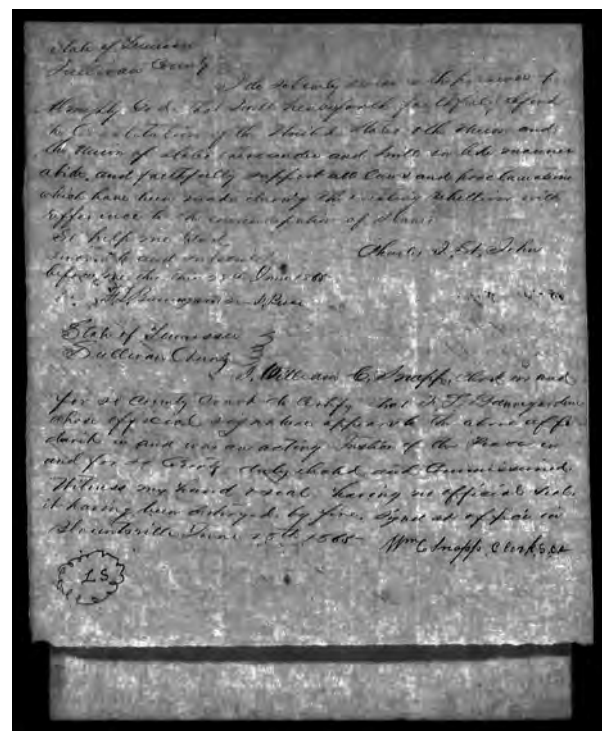 State of Tennessee
Sullivan County
I do solemnly swear in the presence of
Almighty God that I will henceforth faithfully defend
the Constitution of the United States & the Union and
the Union of states thereunder and will in like manner
abide, and faithfully support all laws and proclamations
which have been made during the existing rebellion with
refference to the emancipation of slaves
So help me God
Sworn to and subscribed Charles J. St. John
before me this June 1865
State of Tennessee
Sullivan County
I, William C. Snapp, Clerk in and
for sd County Court do Certify that
whose official signature appears to the above affi
davit is and was an acting Justice of the Peace in
and for sd County duly elected and Commissioned.
Witness my hand & seal having no official seal
it having been destroyed by fire. Signed at office in
Blountville June 1865
Wm C Snapp, Clerk
L S